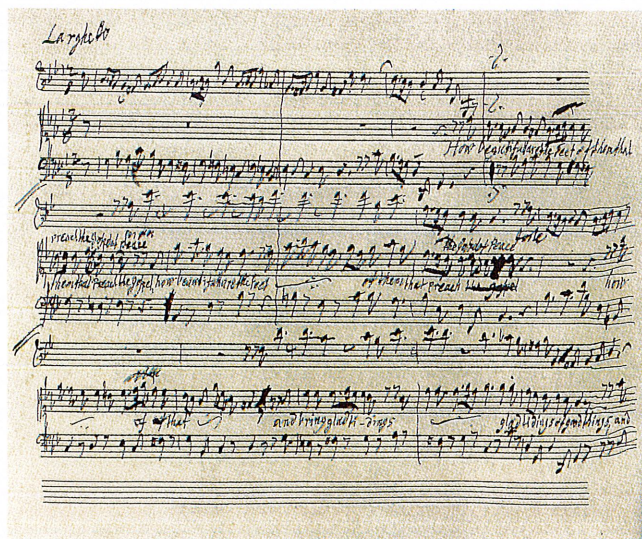 Larghetto
How beautiful are the feet of them that
preach the gospel of peace the gospel of peace forte
them that preach the gospel, how beautiful are the feet of them that preach the gospel how
of that and bring glad ti-dings glad tidings of good things, and